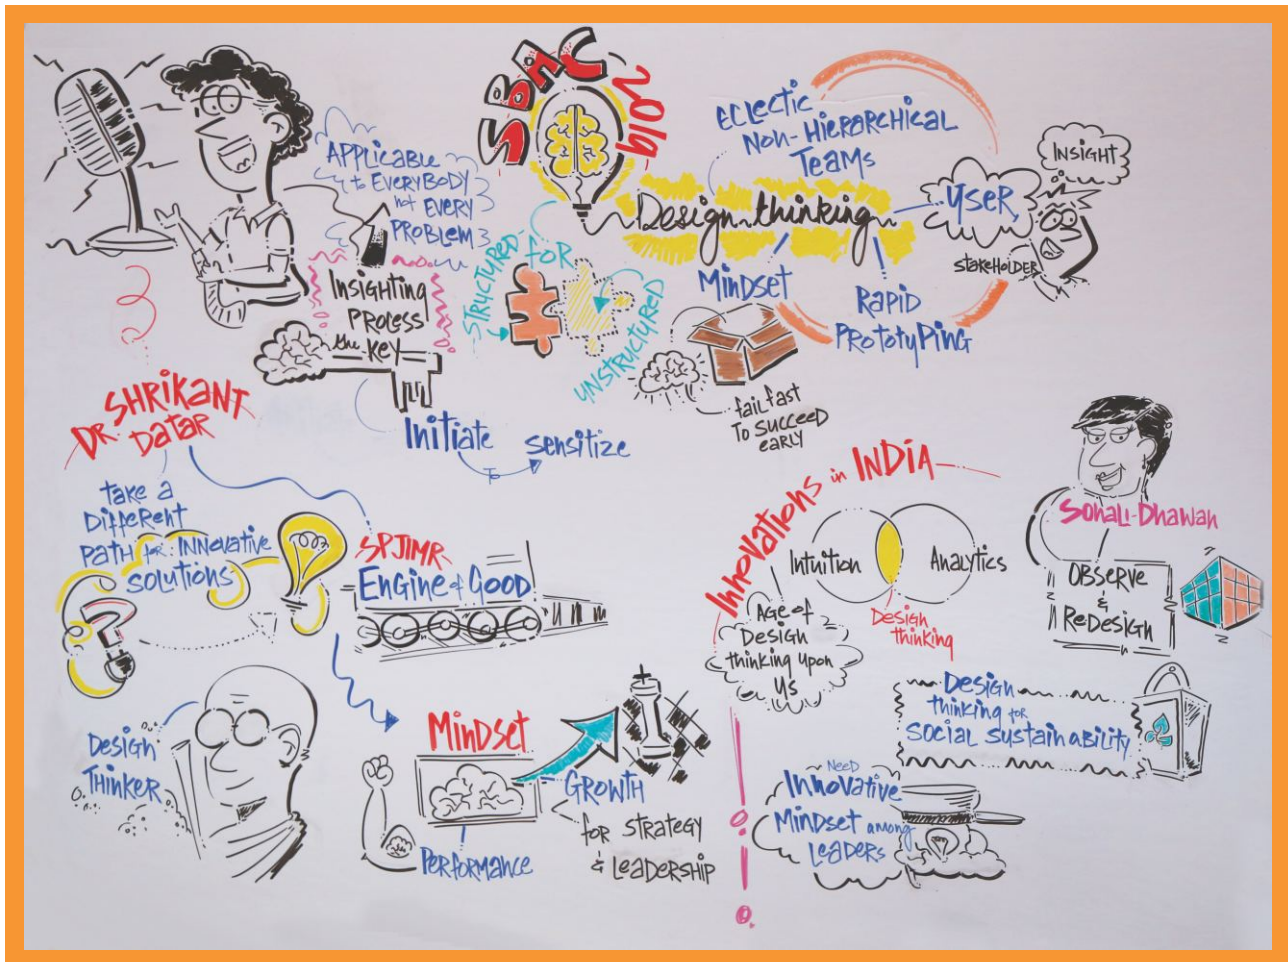 SBMC 2019
APPLICABLE
to EVERYBODY
not EVERY
PROBLEM
INSIGHTING
PROCESS
the KEY
Initiate
To
sensitize
STRUCTURED
FOR
UNSTRUCTURED
ECLECTIC
NON-HIERARCHICAL
TEAMS
Design thinking
USER
INSIGHT
STAKEHOLDER
MINDSET
RAPID
PROTOTYPING
fail fast
To SUCCEED
EARLY
DR. SHRIKANT
DATAR
take a
DIFFERENT
PATH for INNOVATIVE
SOLUTIONS
SPJIMR
ENGINE of GOOD
DESIGN
THINKER
MINDSET
PERFORMANCE
GROWTH
for STRATEGY
& LEADERSHIP
Innovations in INDIA
Intuition
Analytics
Design
thinking
AGE of
DESIGN
thinking upon
US
SONALI-DHAWAN
OBSERVE
&
REDESIGN
DESIGN
thinking for
SOCIAL SUSTAINABILITY
NEED
INNOVATIVE
MINDSET among
LEADERS